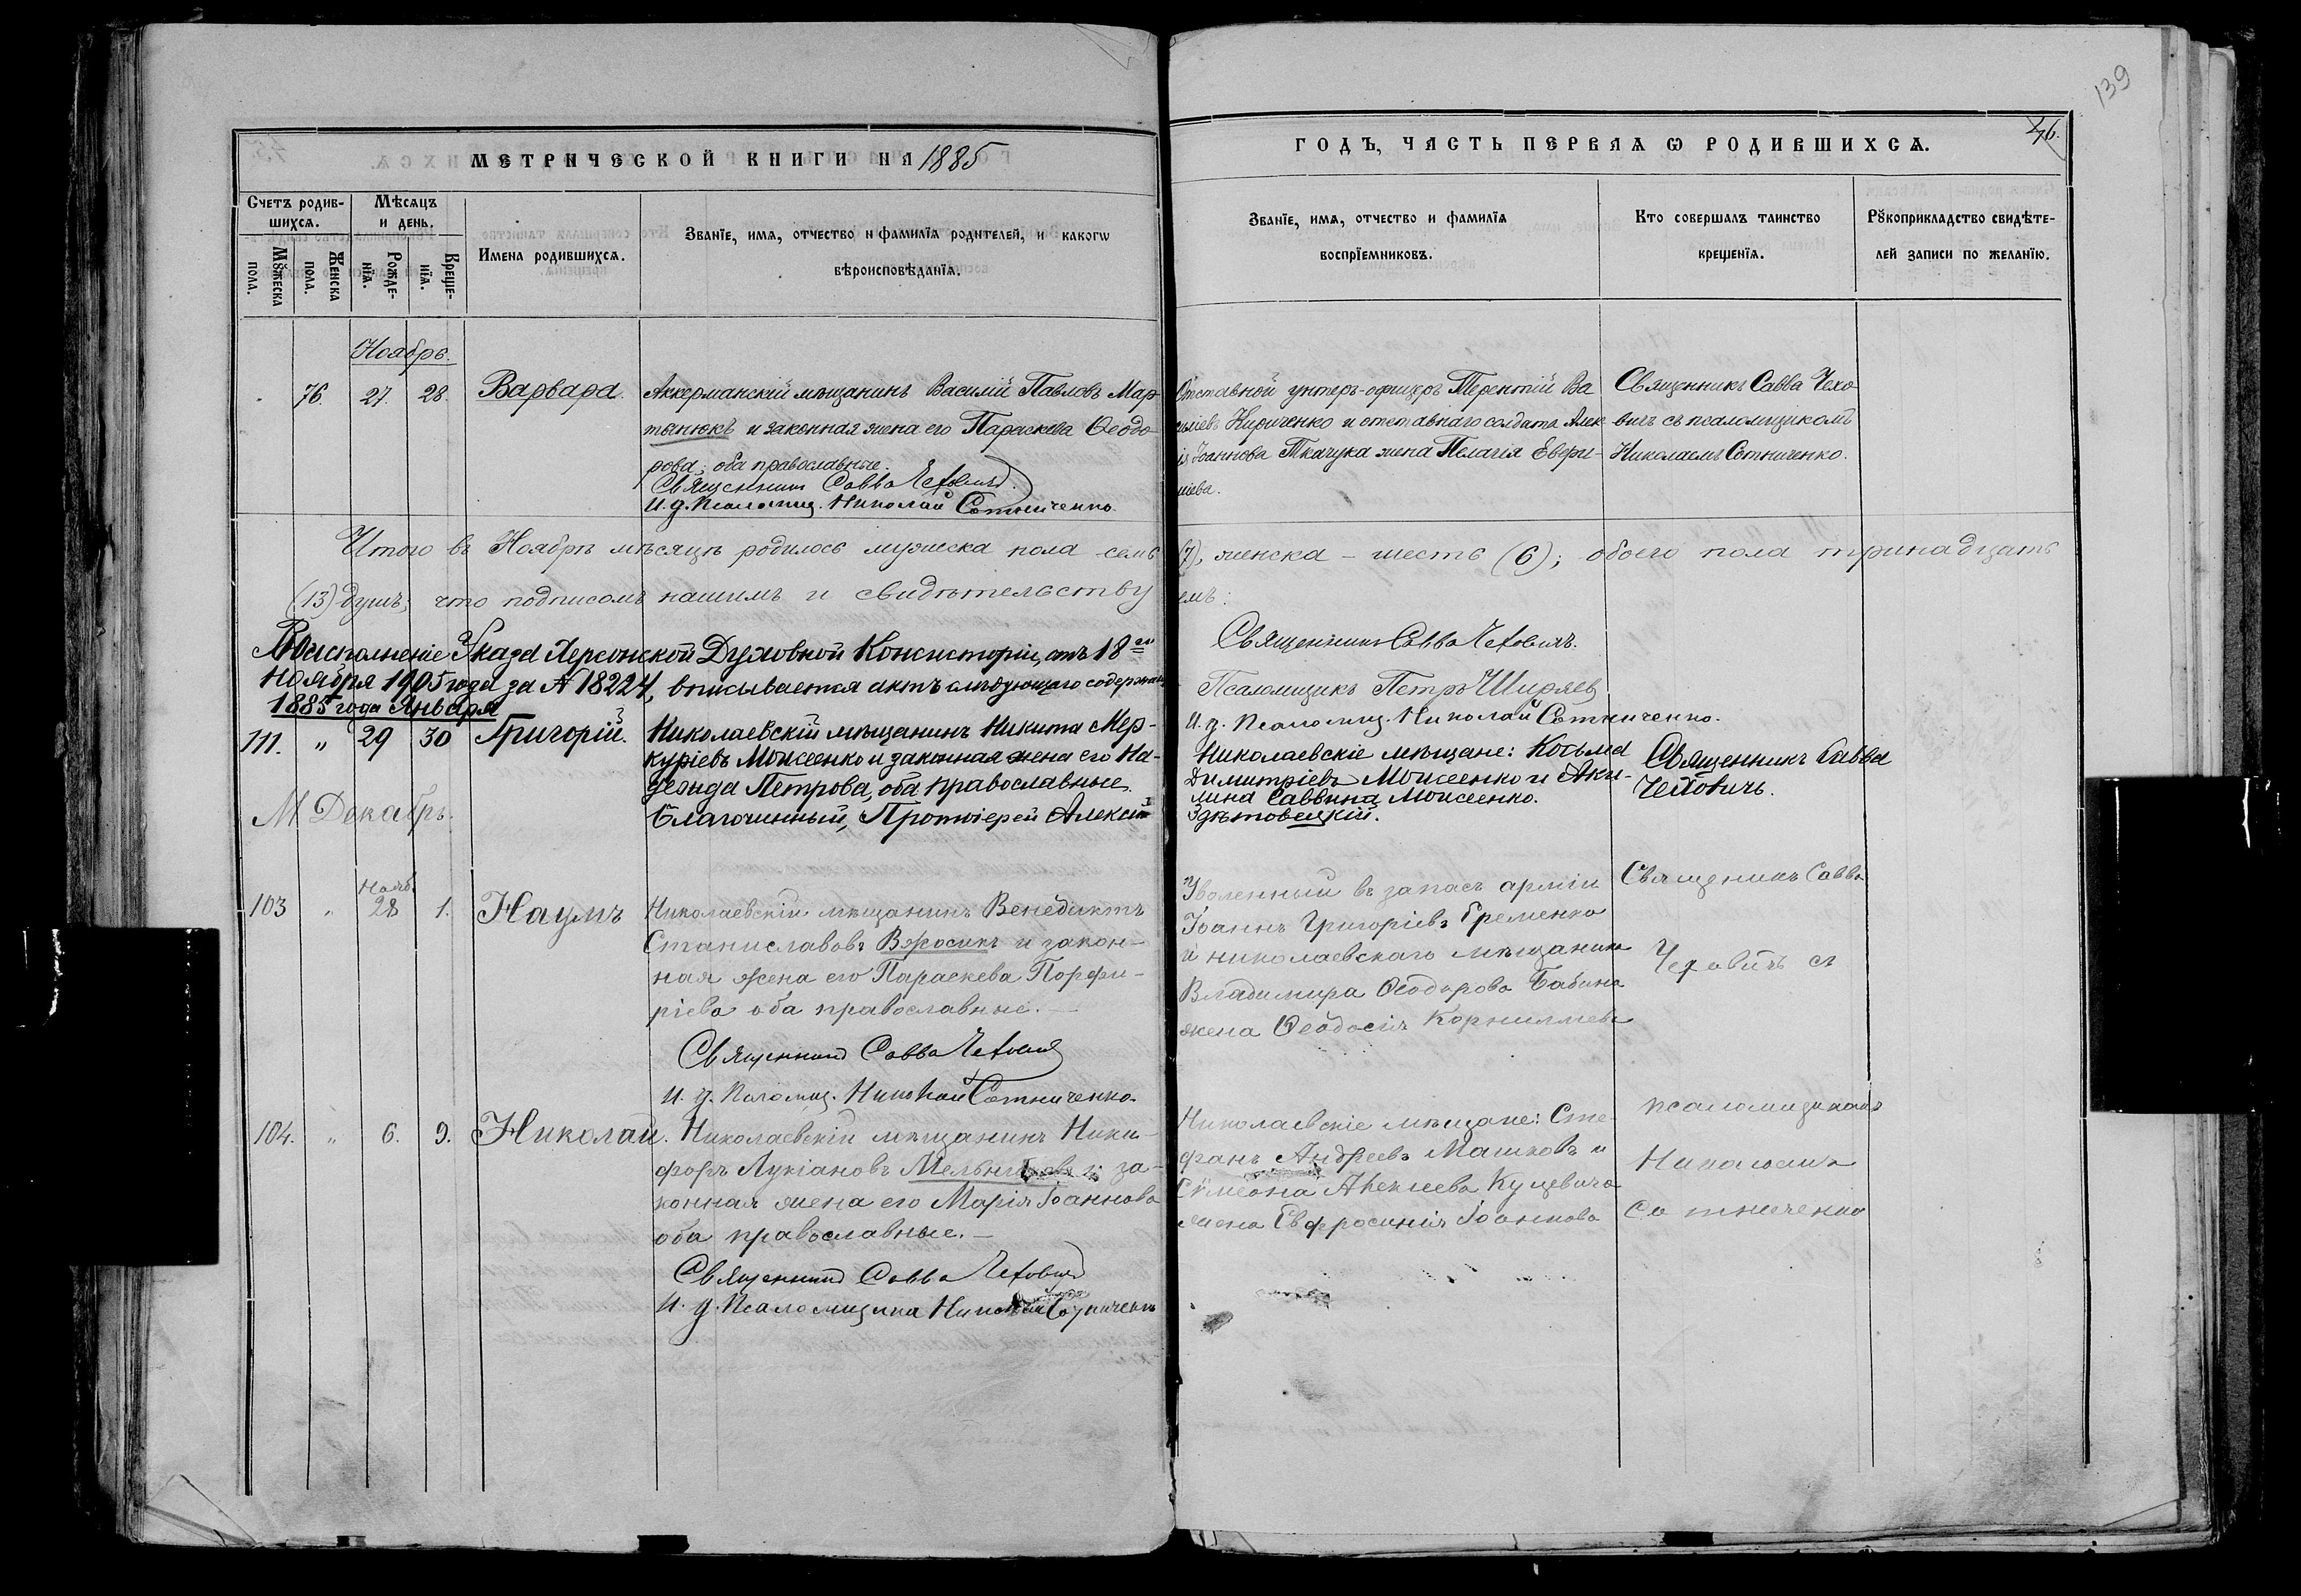 139
МЕТРИЧЕСКОЙ КНИГИ НА 1885
ГОДЪ, ЧАСТЬ ПЕРВАЯ Ѡ РОДИВШИХСѦ.
46.
Счетъ родив-
шихсѧ.
Мѣсѧцъ
и день.
Мꙋжеска
пола.
Женска
пола.
Рожде-
нїѧ.
Креще-
нїѧ.
Имена родившихсѧ.
Званїе, имѧ, отчество и фамилїѧ родителей, и какогѡ
вѣроисповѣданїѧ.
Званїе, имѧ, отчество и фамилїѧ
воспрїемниковъ.
Кто совершалъ таинство
крещенїѧ.
Рꙋкоприкладство свидѣте-
лей записи по желанїю.
Ноябрь.
76. 27. 28. Варвара.
Аккерманскій мѣщанинъ Василій Павловъ Мар-
тынюкъ и законная жена его Параскева Ѳеодо-
рова, оба православные.
Священникъ Савва Чеховичъ.
И. д. Псаломщ. Николай Сотниченко.
Отставной унтеръ-офицеръ Терентій Ва
сильевъ Кириченко и отставнаго солдата Алек
ія Іоаннова Ткачука жена Пелагія Евфи-
міева.
Священникъ Савва Чехо-
вичъ съ псаломщикомъ
Николаемъ Сотниченко.
Итого въ Ноябрѣ мѣсяцѣ родилось мужеска пола семь (7), женска – шесть (6); обоего пола тринадцать
(13) душъ; что подписомъ нашимъ и свидѣтельствуемъ:
Священникъ Савва Чеховичъ.
Псаломщикъ Петръ Ширяев
И. д. Псаломщ. Николай Сотниченко.
Во исполненіе Указа Херсонской Духовной Консисторіи, отъ 18го
ноября 1905 года за № 18224, вписывается актъ слѣдующаго содержан
1885 года Января
111. „ 29 30 Григорій.
Николаевскій мѣщанинъ Никита Мер-
куріевъ Моисеенко и законная жена его На-
дежда Петрова, оба православные.
Благочинный, Протоіерей Алексій
Николаевскіе мѣщане: Косьма
Димитріевъ Моисеенко и Аки-
лина Саввина Моисеенко.
Здѣтовецкій.
Священникъ Савва
Чеховичъ.
М. Декабрь.
103 „ Нояб. 28 1. Наумъ
Николаевскій мѣщанинъ Венедиктъ
Станиславовъ Вжосикъ и закон-
ная жена его Параскева Порфи-
ріева оба православные.—
Священникъ Савва Чеховичъ
И. д. Псаломщ. Николай Сотниченко.
Уволенный въ запасъ арміи
Іоаннъ Григоріевъ Еременко
и николаевскаго мѣщанина
Владимира Ѳеодорова Бабина
жена Ѳеодосія Корнилиева
Священникъ Савва
Чеховичъ съ
псаломщикомъ
Николаемъ
Сотниченко
104. „ 6. 9. Николай.
Николаевскій мѣщанинъ Ники-
форъ Лукіановъ Мельниковъ и за-
конная жена его Марія Іоаннова
оба православные.—
Священникъ Савва Чеховичъ
И. д. Псаломщика Николай Сотниченко
Николаевскіе мѣщане: Сте-
фанъ Андреевъ Машковъ и
Симеона Алексеева Куцевича
жена Евфросинія Іоаннова